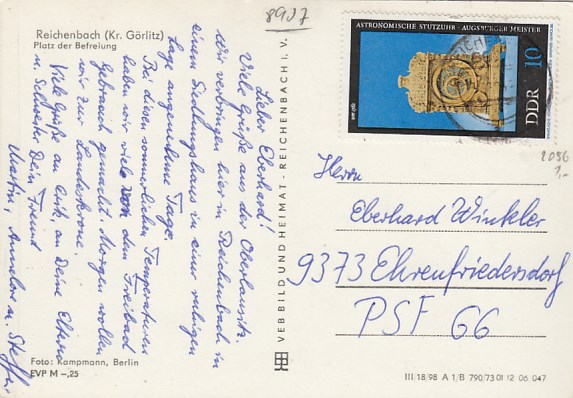 8907
Reichenbach (Kr. Görlitz)
Platz der Befreiung
Lieber Eberhard!
Viele Grüße aus der Oberlausitz.
Wir verbringen hier in Reichenbach in
einem Siedlungshaus in einer ruhigen
Lage angenehme Tage.
Bei diesen sommerlichen Temperaturen
haben wir viele von dem Freibad
Gebrauch gemacht. Morgen wollen
wir zur Landeskrone.
Viele Grüße an Gitti, an Deine Eltern
u. Schwester Dein Freund
Martin, Annelore u. Steffen
Foto: Kampmann, Berlin
EVP M –,25
VEB BILD UND HEIMAT · REICHENBACH I. V.
ASTRONOMISCHE STUTZUHR · AUGSBURGER MEISTER
um 1560
DDR 10
2056
1,-
Herrn
Eberhard Winkler
9373 Ehrenfriedersdorf
PSF 66
III/18/98 A 1/B 790/73 01 12 06 047